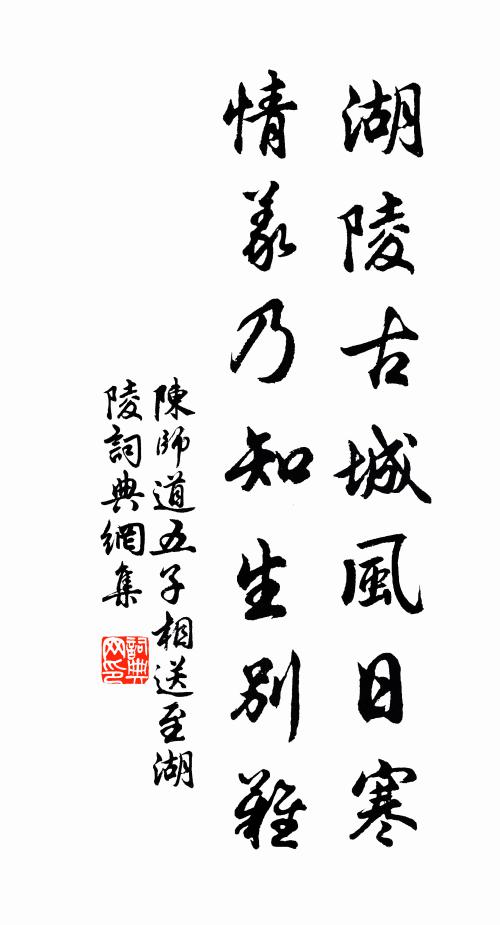 湖陵古城風日寒
情義乃知生別難
陳師道五子相送至湖
陵詞典網集
詞典
網印